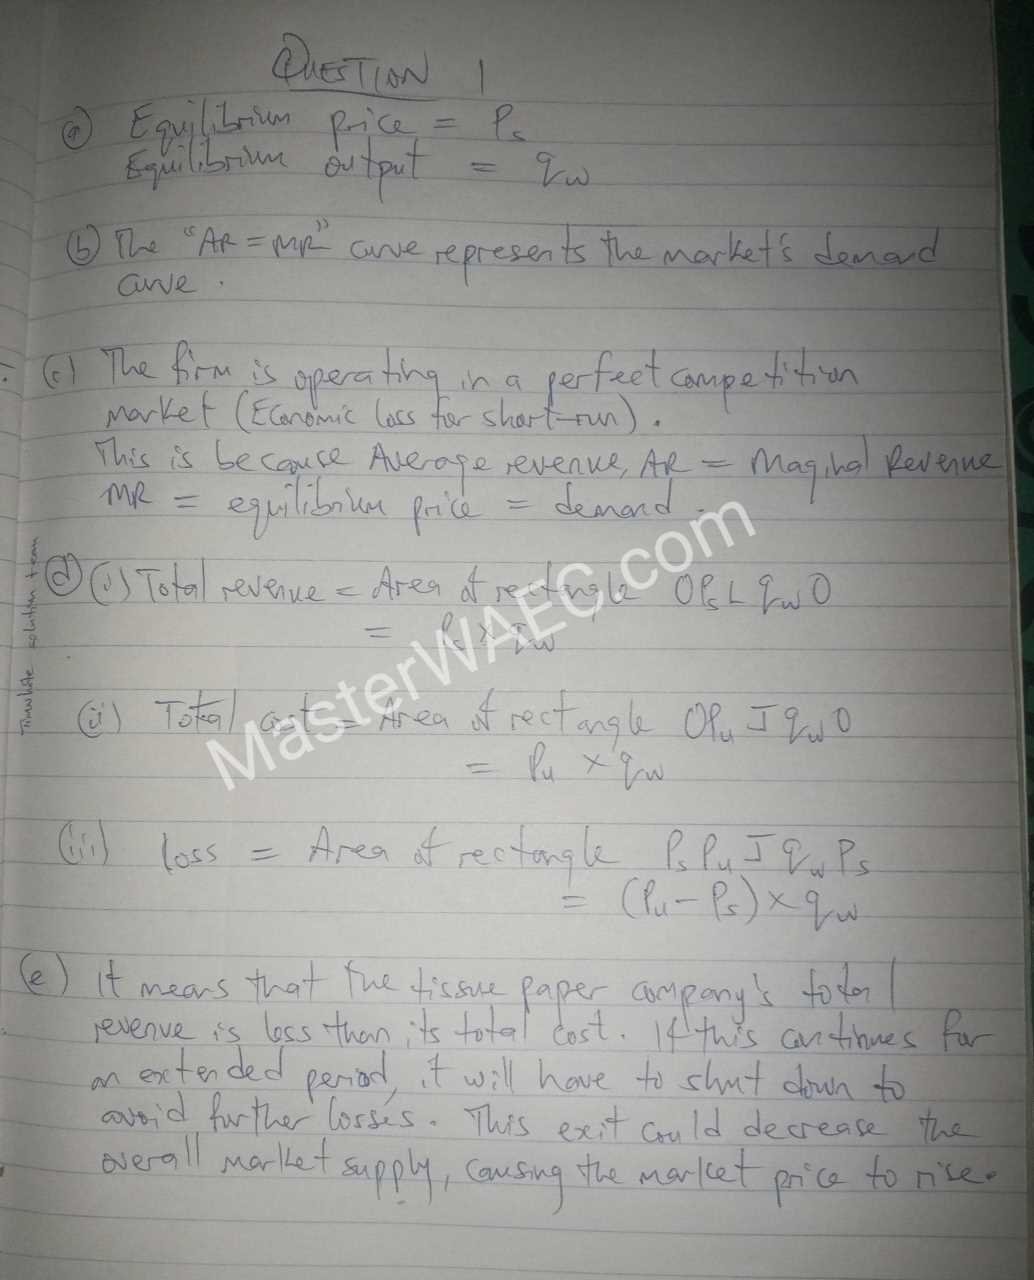 QUESTION 1
(a) Equilibrium price = Ps
Equilibrium output = qw
(b) The "AR = MR" curve represents the market's demand
curve.
(c) The firm is operating in a perfect competition
market (Economic loss for short-run).
This is because Average revenue, AR = Maginal Revenue
MR = equilibrium price = demand.
(d) (i) Total revenue = Area of rectangle OPsLqwO
= Ps × qw
(ii) Total cost = Area of rectangle OPuJqwO
= Pu × qw
(iii) loss = Area of rectangle PsPuJqwPs
= (Pu - Ps) × qw
(e) It means that the tissue paper company's total
revenue is less than its total cost. If this continues for
an extended period, it will have to shut down to
avoid further losses. This exit could decrease the
overall market supply, causing the market price to rise.
MasterWAEC.com
solution team